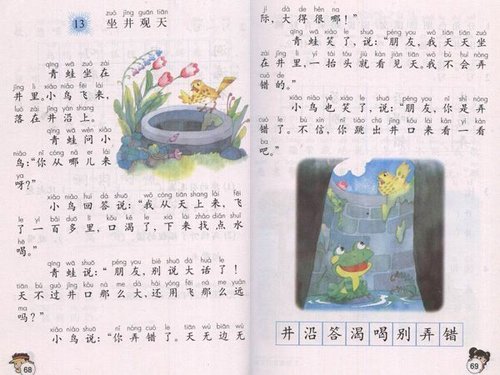 zuò jǐng guān tiān
13 坐井观天
qīng wā zuò zài
青蛙坐在
jǐng lǐ xiǎo niǎo fēi lái
井里。小鸟飞来，
luò zài jǐng yán shang
落在井沿上。
qīng wā wèn xiǎo
青蛙问小
niǎo nǐ cóng nǎ er lái
鸟：“你从哪儿来
ya
呀？”
xiǎo niǎo huí dá shuō wǒ cóng tiān shang lái fēi
小鸟回答说：“我从天上来，飞
le yì bǎi duō lǐ kǒu kě le xià lái zhǎo diǎn shuǐ
了一百多里，口渴了，下来找点水
hē
喝。”
qīng wā shuō péng you bié shuō dà huà le
青蛙说：“朋友，别说大话了！
tiān bú guò jǐng kǒu nà me dà hái yòng fēi nà me yuǎn
天不过井口那么大，还用飞那么远
ma
吗？”
xiǎo niǎo shuō nǐ nòng cuò le tiān wú biān wú
小鸟说：“你弄错了。天无边无
68
jì dà de hěn na
际，大得很哪！”
qīng wā xiào le shuō péng you wǒ tiān tiān zuò
青蛙笑了，说：“朋友，我天天坐
zài jǐng lǐ yì tái tóu jiù kàn jiàn tiān wǒ bú huì nòng
在井里，一抬头就看见天。我不会弄
cuò de
错的。”
xiǎo niǎo yě xiào le shuō péng you nǐ shì nòng
小鸟也笑了，说：“朋友，你是弄
cuò le bú xìn nǐ tiào chū jǐng kǒu lái kàn yi kàn
错了。不信，你跳出井口来看一看
ba
吧。”
井沿答渴喝别弄错
69